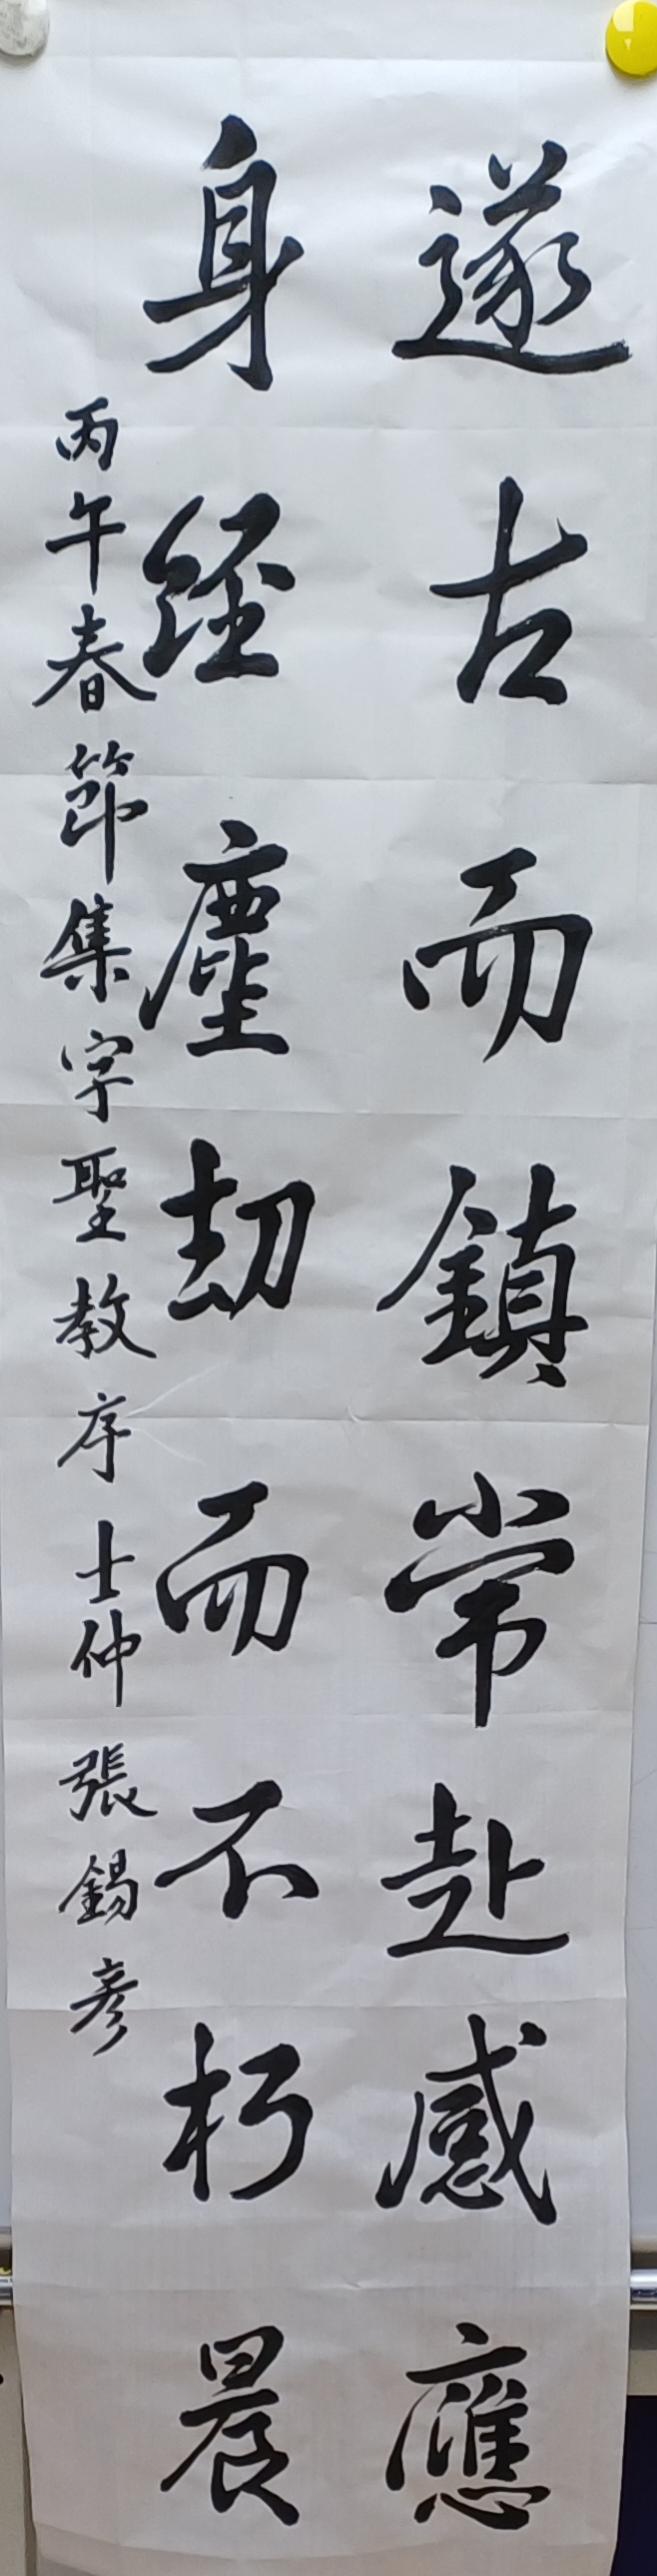 遂古而鎮常赴感應
身經塵劫而不朽晨
丙午春節集字聖教序士仲張錫彥